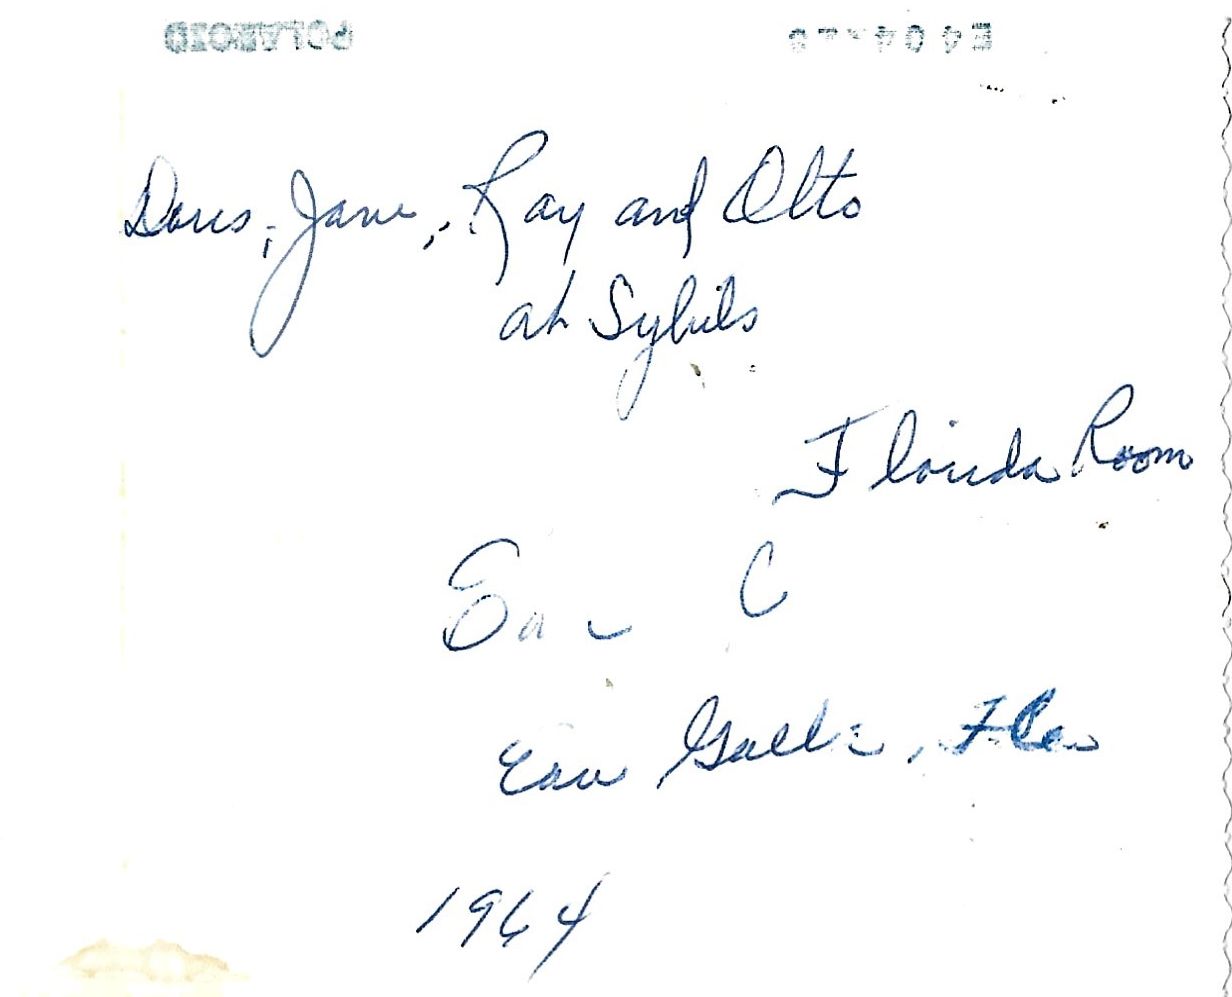 POLAROID
Doris, Jane, Ray and Otto
at Sybils
Florida Room
Eau G
Eau Gallie, Fla
1964